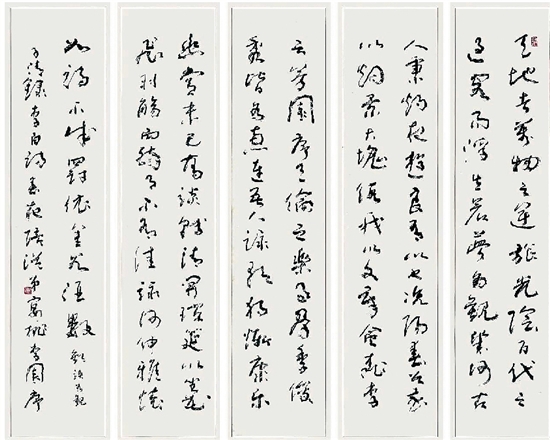 天地者萬物之逆旅光陰百代之
過客而浮生若夢為歡幾何古
人秉燭夜遊良有以也況陽春召我
以烟景大塊假我以文章會桃李
之芳園序天倫之樂事群季俊
秀皆為惠連吾人詠歌獨慚康樂
幽賞未已高談轉清開瓊筵以坐花
飛羽觴而醉月不有佳詠何伸雅懷
如詩不成罰依金谷酒數
錄李白詩春夜陪從弟宴桃李園序